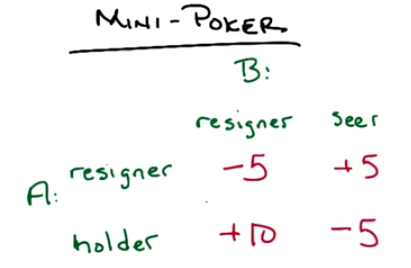 MINI-POKER
B:
resigner seer
resigner -5 +5
A:
holder +10 -5